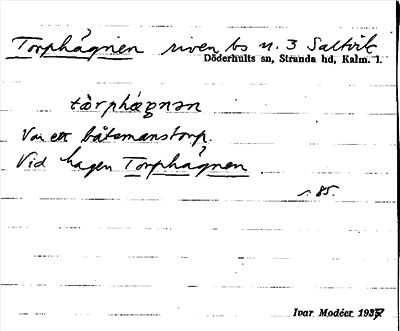 Torphågnen riven bs n. 3 Saltvik
Döderhults sn, Stranda hd, Kalm. l.
tɑ̀rphágnən
Var ett båtsmanstorp.
Vid hagen Torphågnen
~ 85.
Ivar Modéer 1937